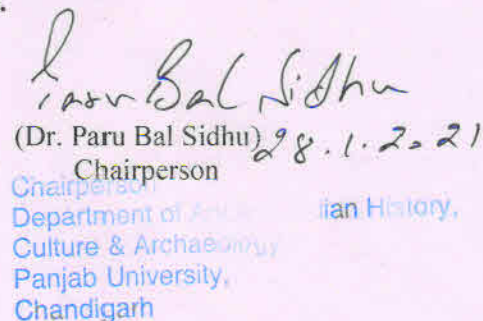 Paru Bal Sidhu
(Dr. Paru Bal Sidhu) 28.1.2021
Chairperson
Chairperson
Department of Anci lian History,
Culture & Archaeology
Panjab University,
Chandigarh